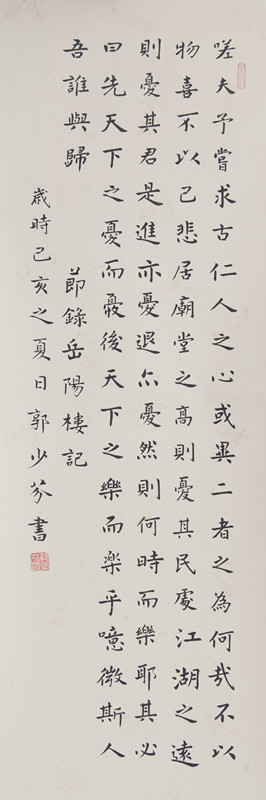 嗟夫予嘗求古仁人之心或異二者之為何哉不以
物喜不以己悲居廟堂之高則憂其民處江湖之遠
則憂其君是進亦憂退亦憂然則何時而樂耶其必
曰先天下之憂而憂後天下之樂而楽乎噫微斯人
吾誰與歸
節錄岳陽樓記
歲時己亥之夏日郭少芬書